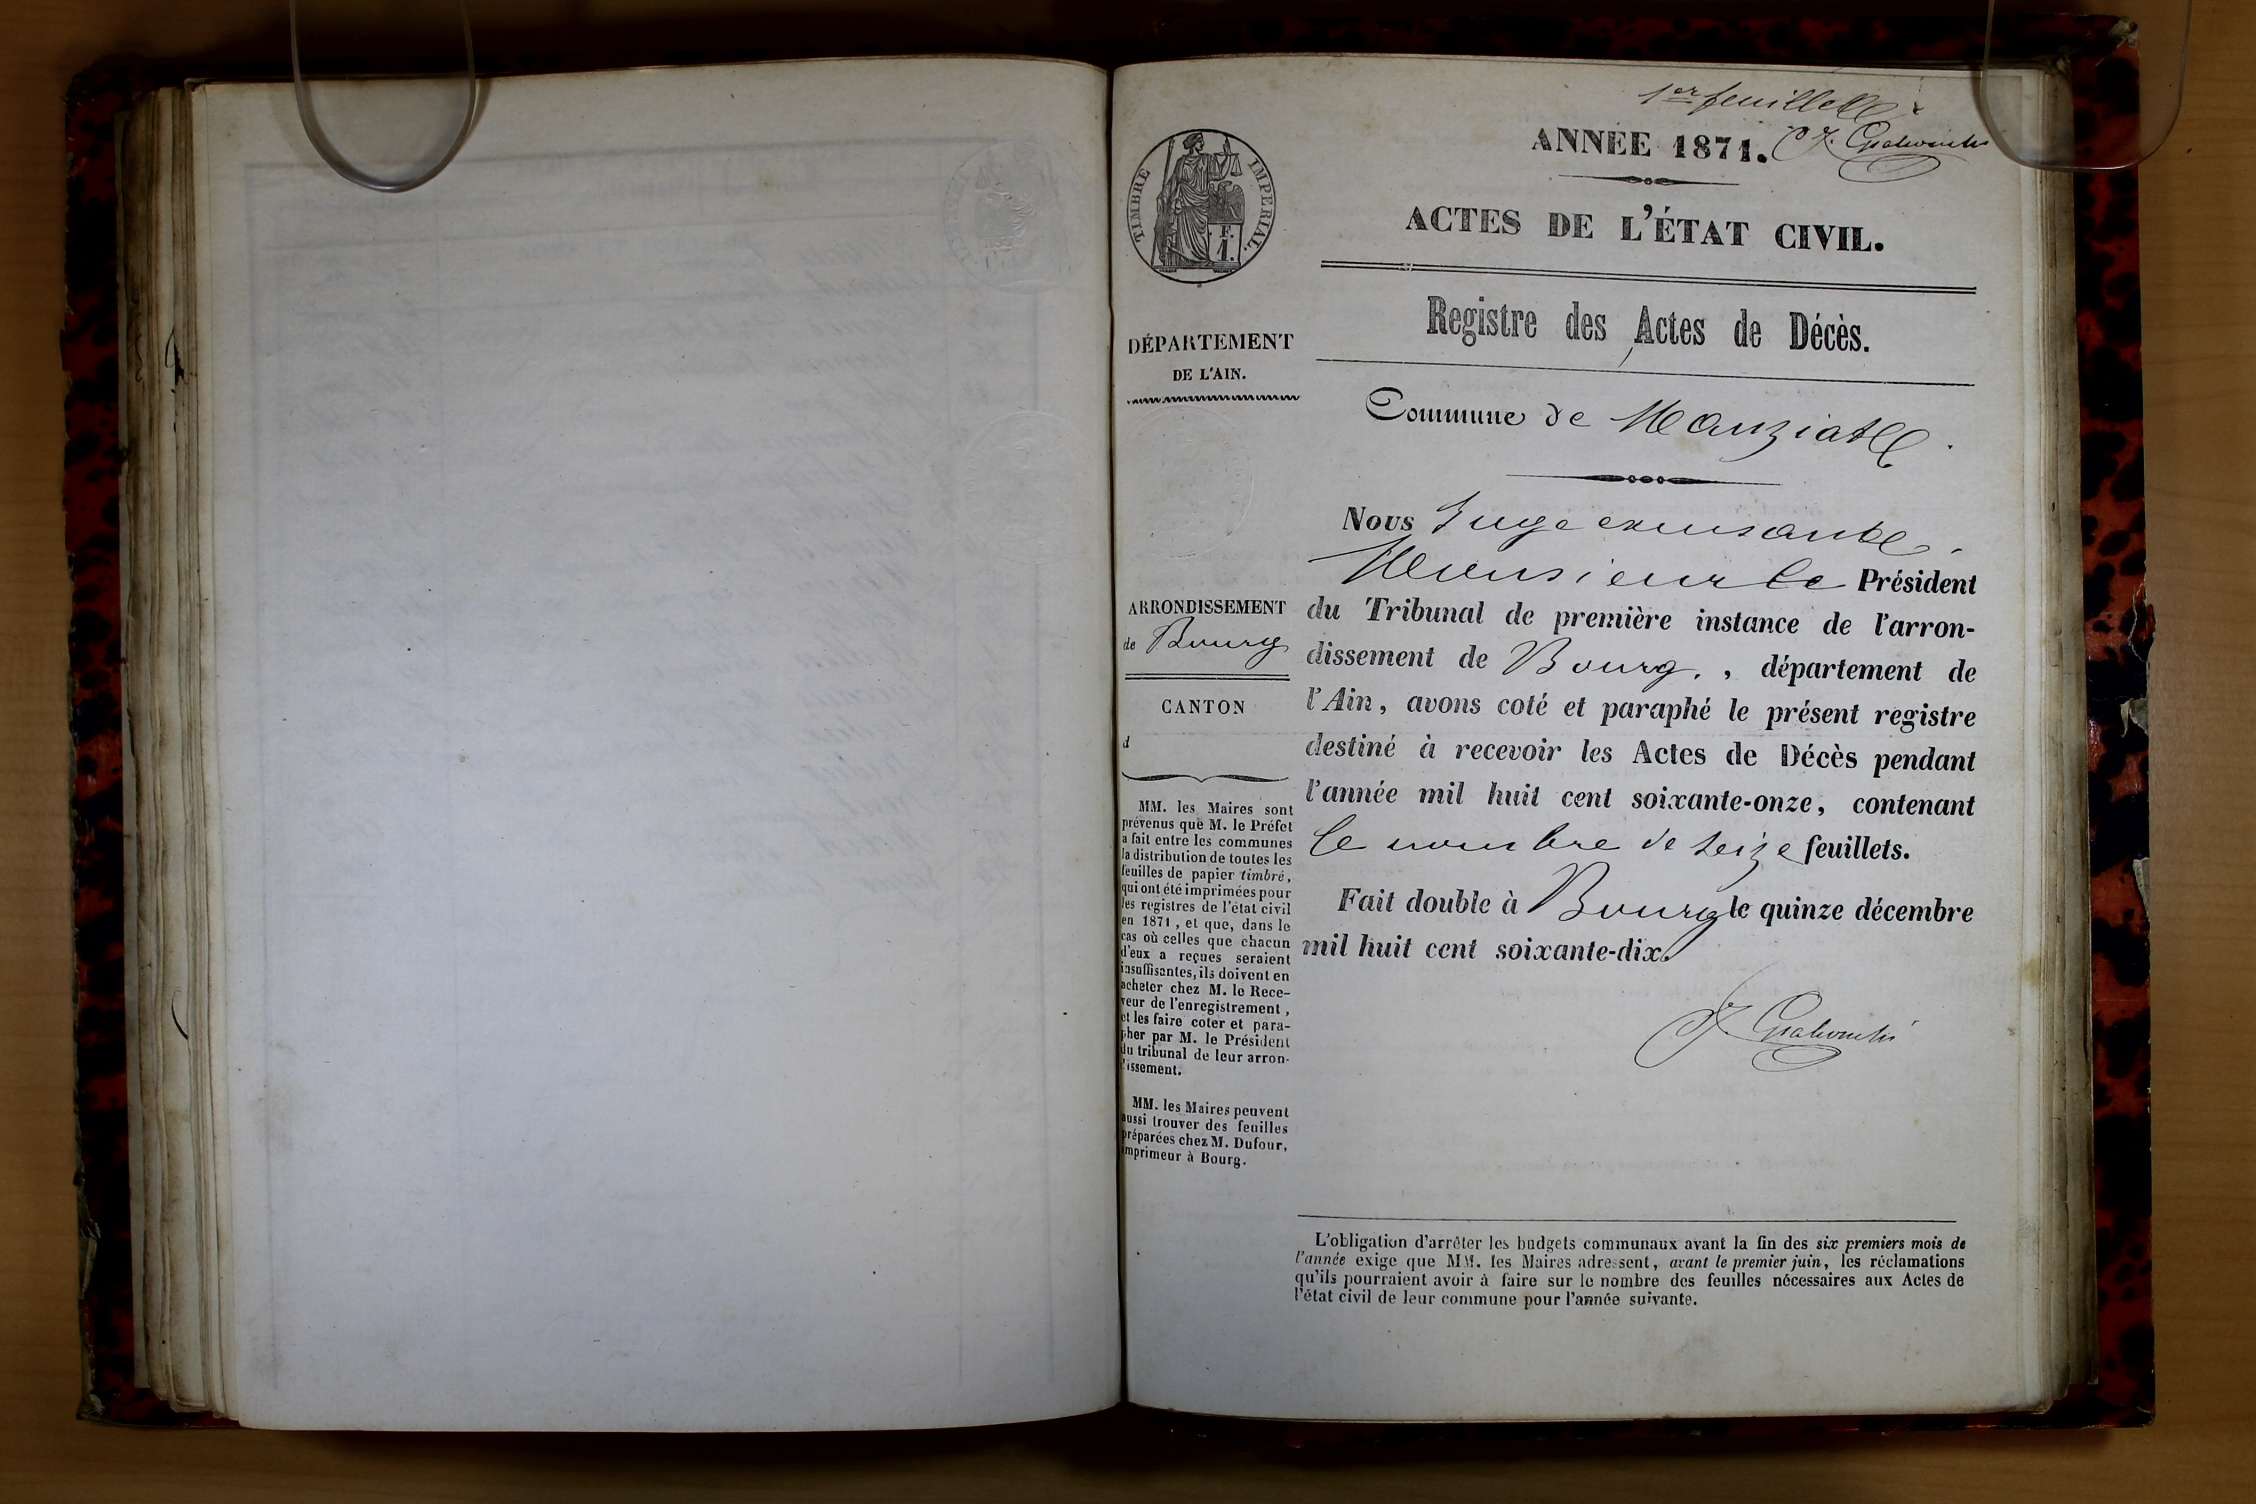 1er feuillet
ANNÉE 1871.
TIMBRE IMPERIAL.
F.
1.
ACTES DE L'ÉTAT CIVIL.
Registre des Actes de Décès.
DÉPARTEMENT
DE L'AIN.
Commune de Manziat
ARRONDISSEMENT
de Bourg
CANTON
d
MM. les Maires sont
prévenus que M. le Préfet
a fait entre les communes
la distribution de toutes les
feuilles de papier timbré,
qui ont été imprimées pour
les registres de l'état civil
en 1871, et que, dans le
cas où celles que chacun
d'eux a reçues seraient
insuffisantes, ils doivent en
acheter chez M. le Rece-
veur de l'enregistrement,
et les faire coter et para-
pher par M. le Président
du tribunal de leur arron-
dissement.
MM. les Maires peuvent
aussi trouver des feuilles
préparées chez M. Dufour,
imprimeur à Bourg.
Nous Juge
Monsieur le Président
du Tribunal de première instance de l'arron-
dissement de Bourg. , département de
l'Ain, avons coté et paraphé le présent registre
destiné à recevoir les Actes de Décès pendant
l'année mil huit cent soixante-onze, contenant
le nombre de seize feuillets.
Fait double à Bourg le quinze décembre
mil huit cent soixante-dix.
L'obligation d'arrêter les budgets communaux avant la fin des six premiers mois de
l'année exige que MM. les Maires adressent, avant le premier juin, les réclamations
qu'ils pourraient avoir à faire sur le nombre des feuilles nécessaires aux Actes de
l'état civil de leur commune pour l'année suivante.